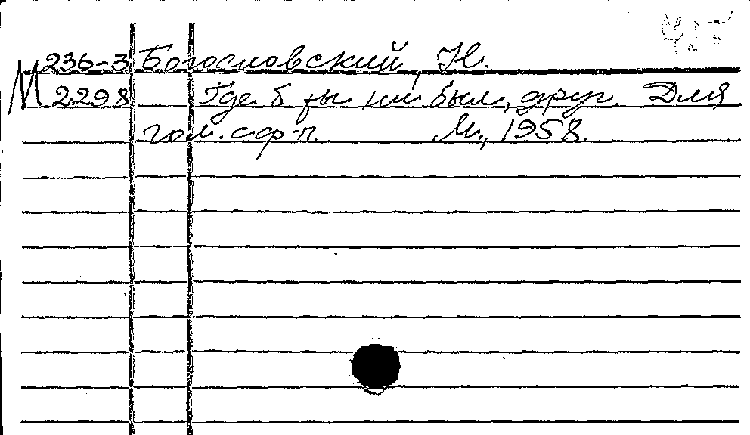 М 236-3 Богословский, Н.
2298 Где б ты ни был, друг. Для
гол. с ф-п. М., 1958.